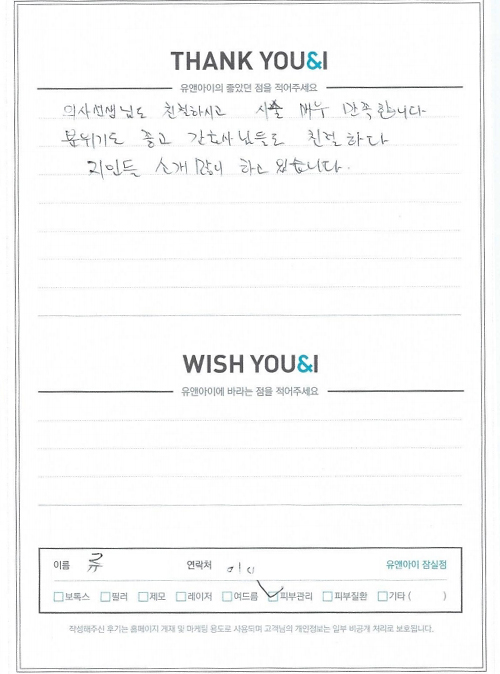 THANK YOU&I
유앤아이의 좋았던 점을 적어주세요
의사선생님도 친절하시고 시술 매우 만족합니다
분위기도 좋고 간호사님들도 친절하다
지인들 소개 많이 하고 있습니다.
WISH YOU&I
유앤아이에 바라는 점을 적어주세요
이름 류 연락처 유앤아이 잠실점
보톡스 필러 제모 레이저 여드름 피부관리 피부질환 기타 ( )
작성해주신 후기는 홈페이지 게재 및 마케팅 용도로 사용되며 고객님의 개인정보는 일부 비공개 처리로 보호됩니다.